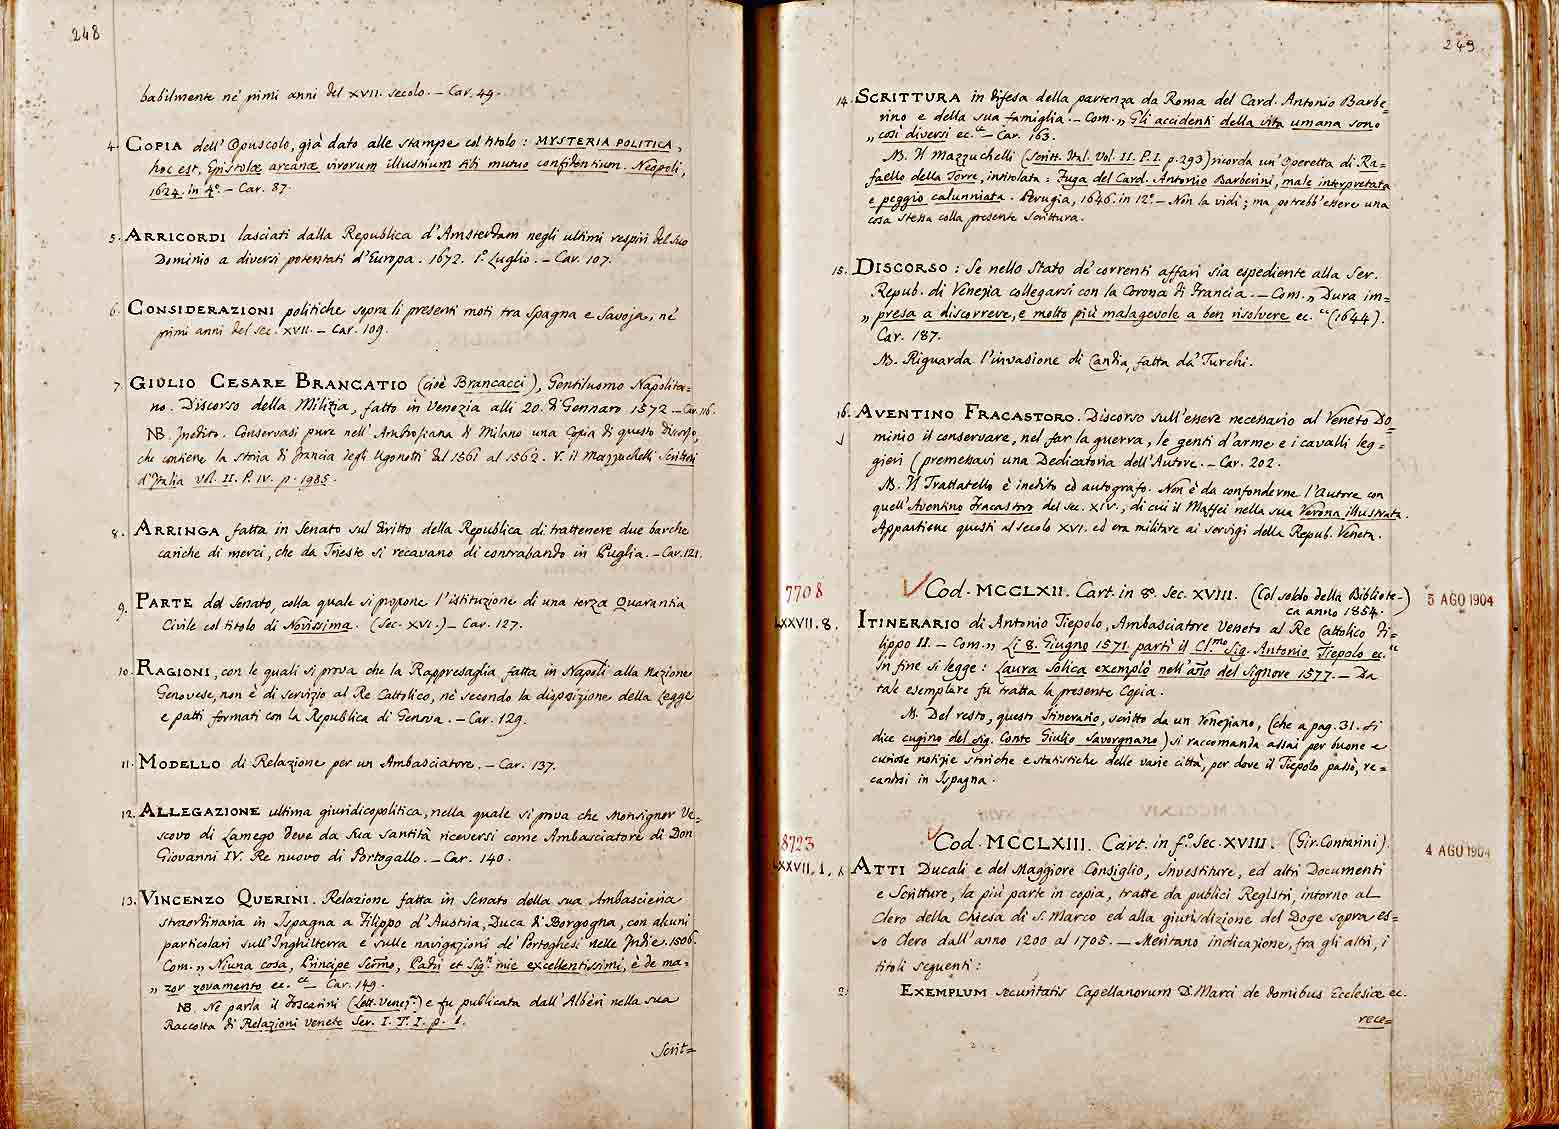 248
babilmente ne' primi anni del XVII. secolo. — Car. 49.
4. COPIA dell' Opuscolo, già dato alle stampe col titolo: MYSTERIA POLITICA,
hoc est, Epistolæ arcanæ virorum illustrium sibi mutuo confidentium. Neapoli,
1624. in 4.º — Car. 87.
5. ARRICORDI lasciati dalla Republica d'Amsterdam negli ultimi respiri del suo
Dominio a diversi potentati d'Europa. 1672. 1.º Luglio. — Car. 107.
6. CONSIDERAZIONI politiche sopra li presenti moti tra Spagna e Savoja, ne'
primi anni del sec. XVII. — Car. 109.
7. GIULIO CESARE BRANCATIO (cioè Brancacci), Gentiluomo Napolita=
no. Discorso della Milizia, fatto in Venezia alli 20. di Gennaro 1572 — Car. 116.
NB. Inedito. Conservasi pure nell' Ambrosiana di Milano una Copia di questo discorso,
che contiene la storia di Francia degli Ugonotti dal 1561 al 1562. V. il Mazzuchelli Scrittori
d'Italia Vol. II. P. IV. p. 1985.
8. ARRINGA fatta in Senato sul diritto della Republica di trattenere due barche
cariche di merci, che da Trieste si recavano di contrabando in Puglia. — Car. 121.
9. PARTE del Senato, colla quale si propone l'istituzione di una terza Quarantia
Civile col titolo di Novissima. (Sec. XVI.) — Car. 127.
10. RAGIONI, con le quali si prova che la Rappresaglia fatta in Napoli alla Nazione
Genovese, non è di servizio al Re Cattolico, nè secondo la disposizione della Legge
e patti formati con la Republica di Genova. — Car. 129.
11. MODELLO di Relazione per un Ambasciatore. — Car. 137.
12. ALLEGAZIONE ultima giuridicopolitica, nella quale si prova che Monsignor Ve=
scovo di Lamego deve da Sua Santità riceversi come Ambasciatore di Don
Giovanni IV. Re nuovo di Portogallo. — Car. 140.
13. VINCENZO QUERINI. Relazione fatta in Senato della sua Ambascieria
straordinaria in Ispagna a Filippo d'Austria, Duca di Borgogna, con alcuni
particolari sull'Inghilterra e sulle navigazioni de' Portoghesi nelle Indie. 1506.
Com. „ Niuna cosa, Principe Sermo, Padri et Sig.ri mie excellentissimi, è de ma=
„ zor zovamento ec. “ — Car. 149.
NB. Ne parla il Foscarini (Lett. Venez.) e fu publicata dall'Albèri nella sua
Raccolta di Relazioni venete Ser. I. T. I. p. 1.
Scrit=
249
14. SCRITTURA in difesa della partenza da Roma del Card. Antonio Barbe=
rino e della sua famiglia. — Com. „ Gli accidenti della vita umana sono
„ così diversi ec. “ — Car. 163.
NB. Il Mazzuchelli (Scritt. Ital. Vol. II. P. I. p. 293) ricorda un' Operetta di Ra=
faello della Torre, intitolata: Fuga del Card. Antonio Barberini, male interpretata
e peggio calunniata. Perugia, 1646. in 12.º — Non la vidi; ma potrebb'essere una
cosa stessa colla presente Scrittura.
15. DISCORSO: Se nello stato de' correnti affari sia espediente alla Ser.
Repub. di Venezia collegarsi con la Corona di Francia. — Com. „ Dura im=
„ presa a discorrere, e molto più malagevole a ben risolvere ec. “ (1644).
Car. 187.
NB. Riguarda l'invasione di Candia, fatta da' Turchi.
16. AVENTINO FRACASTORO. Discorso sull'essere necessario al Veneto Do=
minio il conservare, nel far la guerra, le genti d'arme e i cavalli leg=
gieri (premessavi una Dedicatoria dell'Autore. — Car. 202.
NB. Il Trattatello è inedito ed autografo. Non è da confonderne l'Autore con
quell'Aventino Fracastoro del sec. XIV., di cui il Maffei nella sua Verona illustrata.
Appartiene questi al secolo XVI. ed era militare ai servigi della Repub. Veneta.
7708
Cod. MCCLXII. Cart. in 8.º Sec. XVIII. (Col soldo della Bibliote=
ca anno 1854.)
5 AGO 1904
LXXVII. 8.
ITINERARIO di Antonio Tiepolo, Ambasciatore Veneto al Re Cattolico Fi=
lippo II. — Com. „ Li 8. Giugno 1571. partì il Cl.mo Sig. Antonio Tiepolo ec. “
In fine si legge: Laura Solica exemplò nell'año del Signore 1577. — Da
tale esemplare fu tratta la presente Copia.
NB. Del resto, questo Itinerario, scritto da un Veneziano, (che a pag. 31. si
dice cugino del sig. Conte Giulio Savorgnano) si raccomanda assai per buone e
curiose notizie storiche e statistiche delle varie città, per dove il Tiepolo passò, re=
candosi in Ispagna.
8723
Cod. MCCLXIII. Cart. in f.º Sec. XVIII. (Gir. Contarini).
4 AGO 1904
LXXVII. 1.
ATTI Ducali e del Maggiore Consiglio, Investiture, ed altri Documenti
e Scritture, la più parte in copia, tratte da publici Registri, intorno al
Clero della Chiesa di S. Marco ed alla giurisdizione del Doge sopra es=
so Clero dall'anno 1200 al 1705. — Meritano indicazione, fra gli altri, i
titoli seguenti:
2. EXEMPLUM securitatis Capellanorum D. Marci de domibus Ecclesiæ ec.
rece=